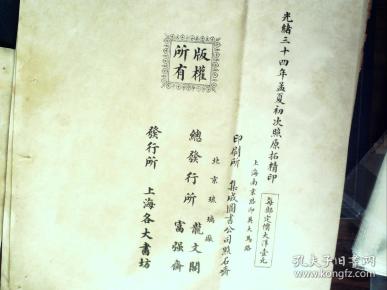 光緒三十四年孟夏初次照原拓精印
每部定價大洋壹元
上海南京路即英大馬路
印刷所 集成圖書公司照石齋
北京琉璃廠
總發行所 龍文閣
富强齋
發行所 上海各大書坊
版權
所有